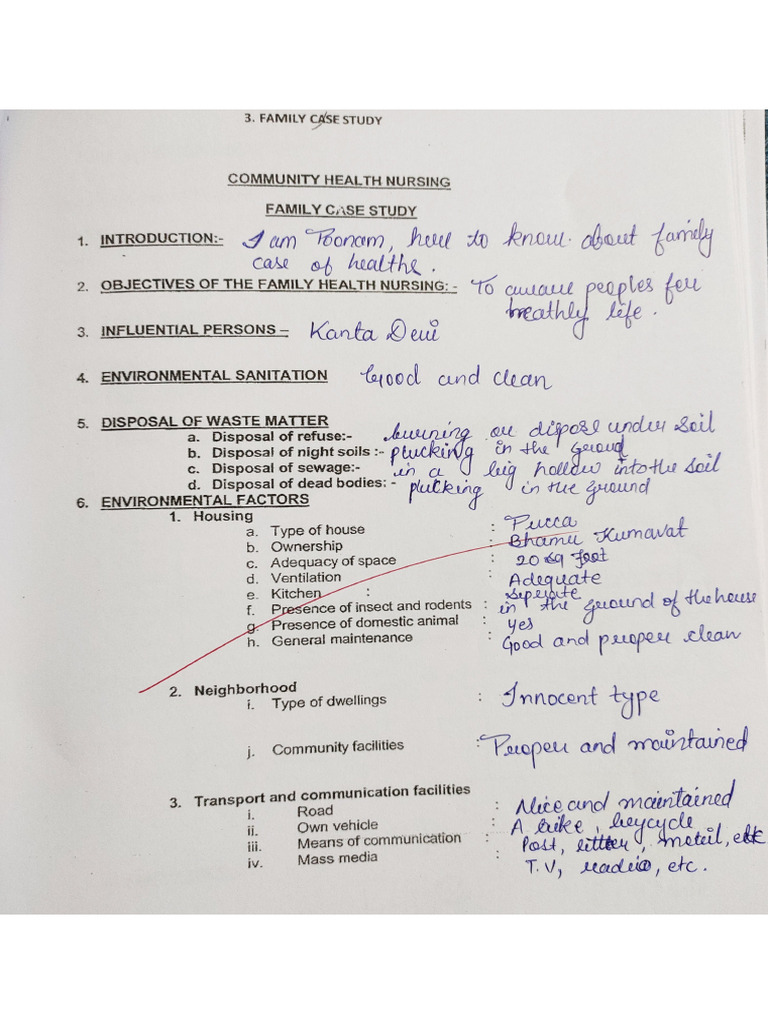 3. FAMILY CASE STUDY
COMMUNITY HEALTH NURSING
FAMILY CASE STUDY
1. INTRODUCTION:- I am Poonam, here to know about family
case of healths.
2. OBJECTIVES OF THE FAMILY HEALTH NURSING: - To aware peoples for
breathly life.
3. INFLUENTIAL PERSONS – Kanta Devi
4. ENVIRONMENTAL SANITATION Good and clean
5. DISPOSAL OF WASTE MATTER
a. Disposal of refuse:- burning or dispose under soil
b. Disposal of night soils :- plucking in the ground
c. Disposal of sewage:- in a big hollow into the soil
d. Disposal of dead bodies: - plucking in the ground
6. ENVIRONMENTAL FACTORS
1. Housing
a. Type of house : Pucca
b. Ownership : Bhamu Kumavat
c. Adequacy of space : 20 sq feet
d. Ventilation : Adequate
e. Kitchen : seperate
f. Presence of insect and rodents : in the ground of the house
g. Presence of domestic animal : yes
h. General maintenance : Good and proper clean
2. Neighborhood
i. Type of dwellings : Innocent type
j. Community facilities : Proper and maintained
3. Transport and communication facilities
i. Road : Nice and maintained
ii. Own vehicle : A bike, beycycle
iii. Means of communication : Post, letter, etc
iv. Mass media : T.V, radio, etc.